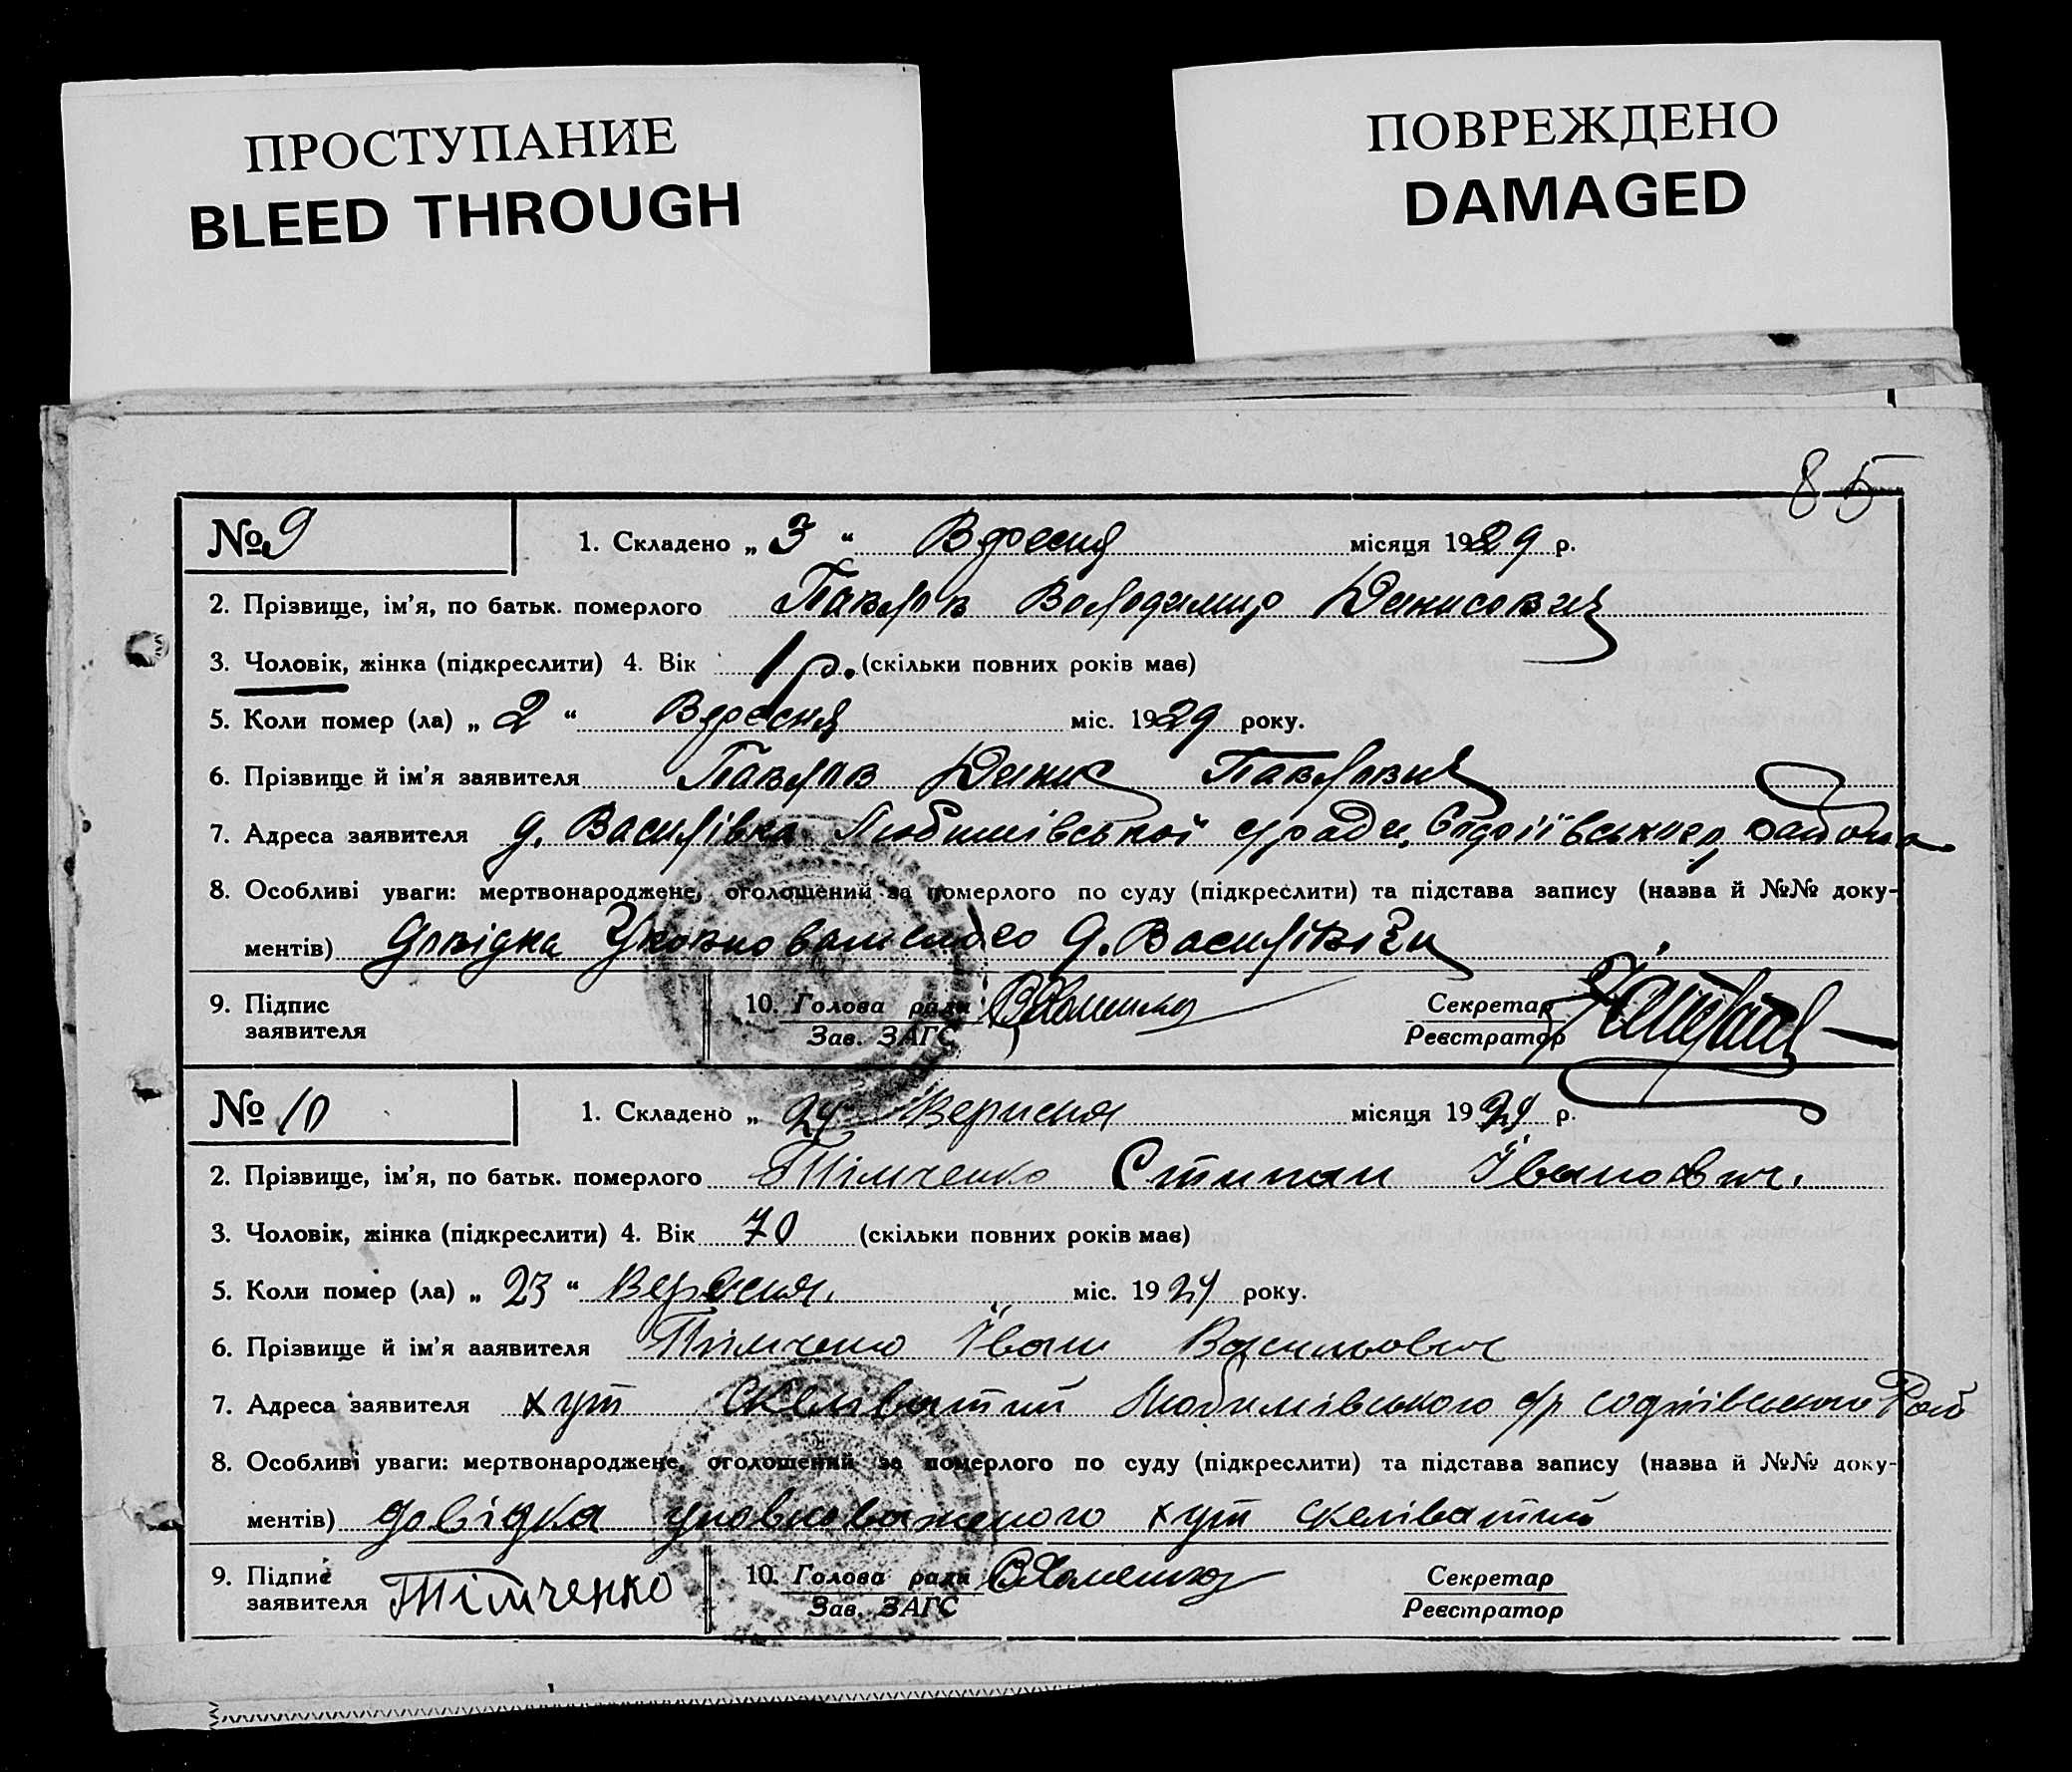 ПРОСТУПАНИЕ
BLEED THROUGH
ПОВРЕЖДЕНО
DAMAGED
85
№ 9 1. Складено „ 3 “ Вересня місяця 1929 р.
2. Прізвище, ім'я, по батьк. померлого Павлов Володимир Денисович
3. Чоловік, жінка (підкреслити) 4. Вік 1 р. (скільки повних років має)
5. Коли помер (ла) „ 2 “ Вересня міс. 1929 року.
6. Прізвище й ім'я заявителя Павлов Денис Павлович
7. Адреса заявителя д. Василівка Любимівської с/ради, Софіївського району
8. Особливі уваги: мертвонароджене, оголошений за померлого по суду (підкреслити) та підстава запису (назва й №№ доку-
ментів) Довідка Уповноваженого д. Василівки
9. Підпис заявителя 10. Голова ради Зав. ЗАГС Секретар Реєстратор
№ 10 1. Складено „ 24 Верисня місяця 1929 р.
2. Прізвище, ім'я, по батьк. померлого Тімченко Стипан Іванович.
3. Чоловік, жінка (підкреслити) 4. Вік 70 (скільки повних років має)
5. Коли помер (ла) „ 23 “ Вересня. міс. 1929 року.
6. Прізвище й ім'я ааявителя Тімченко Іван Васильович
7. Адреса заявителя хут Скеліватий Любимівського с/р Софіївського Рай
8. Особливі уваги: мертвонароджене, оголошений за померлого по суду (підкреслити) та підстава запису (назва й №№ доку-
ментів) довідка уповноваженого хут Скеліватий
9. Підпис заявителя Тімченко 10. Голова ради Зав. ЗАГС Секретар Реєстратор